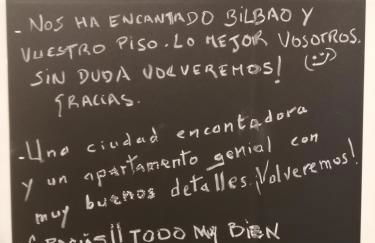 - NOS HA ENCANTADO BILBAO Y
VUESTRO PISO. LO MEJOR VOSOTROS.
SIN DUDA VOLVEREMOS!
GRACIAS.
- Una ciudad encantadora
y un apartamento genial con
muy buenos detalles. ¡Volveremos!
GRACIAS!! TODO MUY BIEN